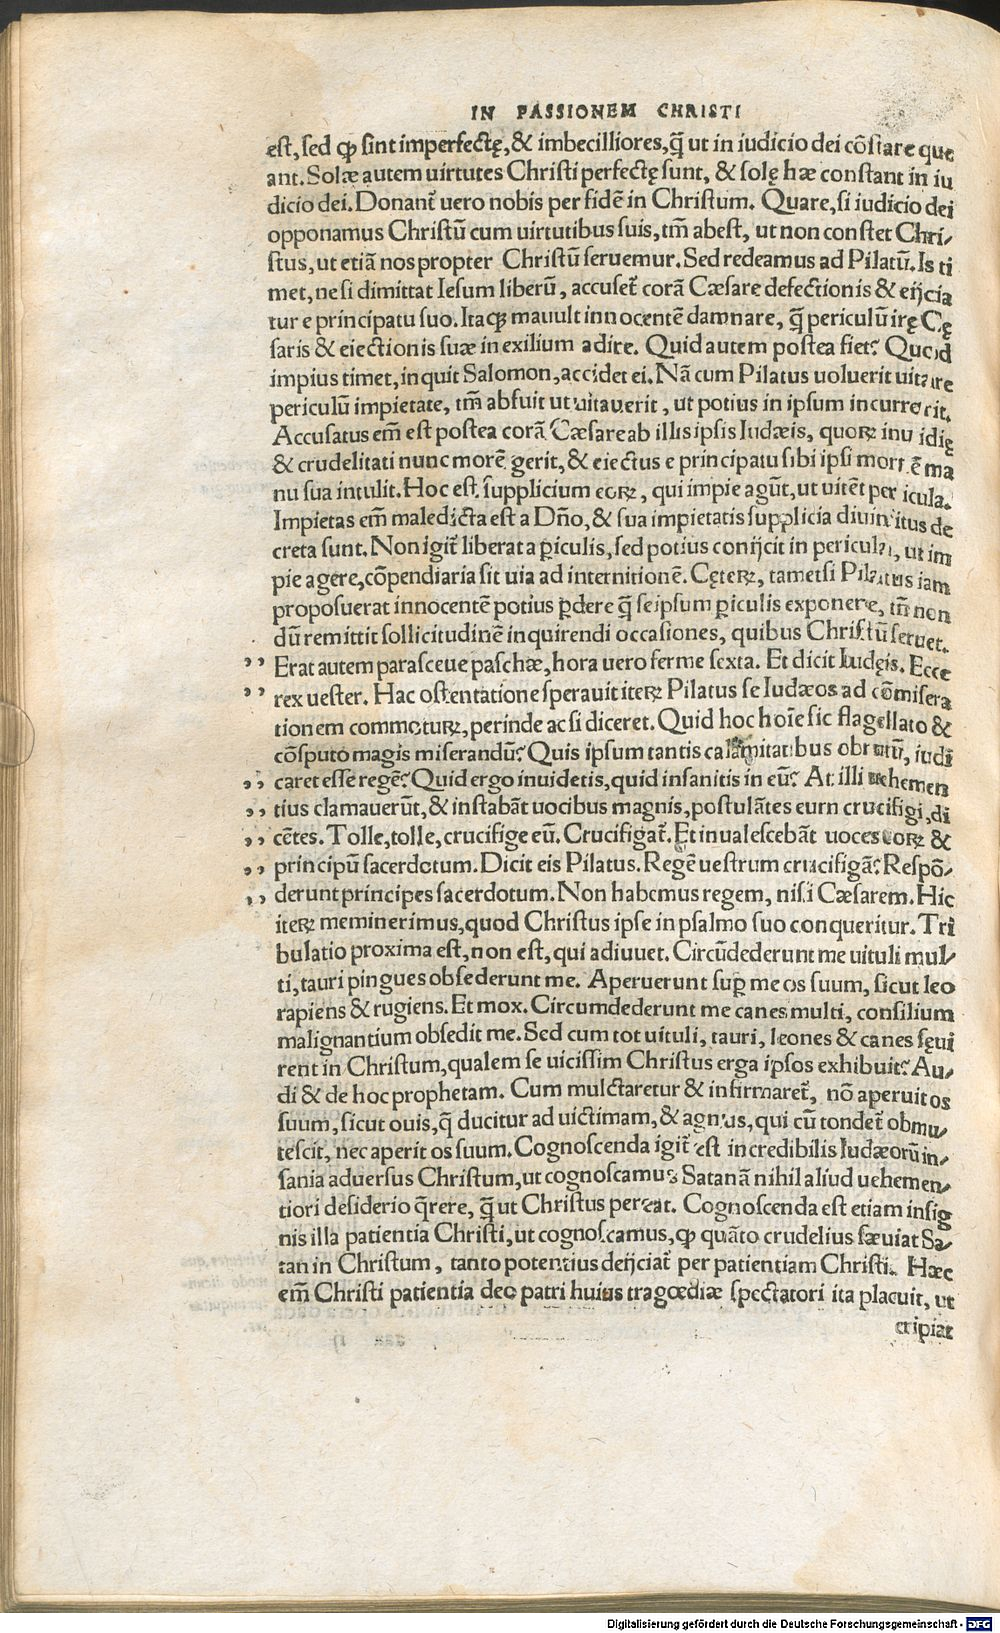 IN PASSIONEM CHRISTI
est, sed ꝙ sint imperfectę, & imbecilliores, q̃ ut in iudicio dei cõstare que
ant. Solæ autem uirtutes Christi perfectę sunt, & solę hæ constant in iu
dicio dei. Donant᷑ uero nobis per fidẽ in Christum. Quare, si iudicio dei
opponamus Christũ cum uirtutibus suis, tm̃ abest, ut non constet Chri-
stus, ut etiã nos propter Christũ seruemur. Sed redeamus ad Pilatũ. Is ti
met, ne si dimittat Iesum liberũ, accuset᷑ corã Cæsare defectionis & eijcia
tur e principatu suo. Itaqꝫ mauult innocentẽ damnare, q̃ periculũ irę Cę
saris & eiectionis suæ in exilium adire. Quid autem postea fiet? Quod
impius timet, inquit Salomon, accidet ei. Nã cum Pilatus uoluerit uitare
periculũ impietate, tm̃ abfuit ut uitauerit, ut potius in ipsum incurrerit.
Accusatus em̃ est postea corã Cæsare ab illis ipsis Iudæis, quoꝝ inuidię
& crudelitati nunc morẽ gerit, & eiectus e principatu sibi ipsi mortẽ ma
nu sua intulit. Hoc est supplicium eoꝝ, qui impie agũt, ut uitẽt pericula.
Impietas em̃ maledicta est a Dño, & sua impietatis supplicia diuinitus de
creta sunt. Non igit᷑ liberat a ꝑiculis, sed potius conijcit in pericula, ut im
pie agere, cõpendiaria sit uia ad internitionẽ. Cęteꝝ, tametsi Pilatus iam
proposuerat innocentẽ potius ꝑdere q̃ seipsum ꝑiculis exponere, tñ non
dũ remittit sollicitudinẽ inquirendi occasiones, quibus Christũ seruet.
,, Erat autem parasceue paschæ, hora uero ferme sexta. Et dicit Iudęis. Ecce
,, rex uester. Hac ostentatione sperauit iteꝝ Pilatus se Iudæos ad cõmisera
tionem commotuꝝ, perinde ac si diceret. Quid hoc hoĩe sic flagellato &
cõsputo magis miserandũ? Quis ipsum tantis calamitatibus obrutũ, iudi
caret esse regẽ? Quid ergo inuidetis, quid insanitis in eũ? At illi uehemen
,, tius clamauerũt, & instabãt uocibus magnis, postulãtes eum crucifigi, di
,, cẽtes. Tolle, tolle, crucifige eũ. Crucifigat᷑. Et inualescebãt uoces eoꝝ &
,, principũ sacerdotum. Dicit eis Pilatus. Regẽ uestrum crucifigã? Respõ-
,, derunt principes sacerdotum. Non habemus regem, nisi Cæsarem. Hic
iteꝝ meminerimus, quod Christus ipse in psalmo suo conqueritur. Tri
bulatio proxima est, non est, qui adiuuet. Circũdederunt me uituli mul-
ti, tauri pingues obsederunt me. Aperuerunt suꝑ me os suum, sicut leo
rapiens & rugiens. Et mox. Circumdederunt me canes multi, consilium
malignantium obsedit me. Sed cum tot uituli, tauri, leones & canes sęui
rent in Christum, qualem se uicissim Christus erga ipsos exhibuit? Au-
di & de hoc prophetam. Cum mulctaretur & infirmaret᷑, nõ aperuit os
suum, sicut ouis, q̃ ducitur ad uictimam, & agnus, qui cũ tondet᷑ obmu-
tescit, nec aperit os suum. Cognoscenda igit᷑ est incredibilis Iudæorũ in-
sania aduersus Christum, ut cognoscamus Satanã nihil aliud uehemen-
tiori desiderio q̃rere, q̃ ut Christus pereat. Cognoscenda est etiam insig
nis illa patientia Christi, ut cognoscamus, ꝙ quãto crudelius sæuiat Sa-
tan in Christum, tanto potentius deijciat᷑ per patientiam Christi. Hæc
em̃ Christi patientia deo patri huius tragœdiæ spectatori ita placuit, ut
eripiat
Digitalisierung gefördert durch die Deutsche Forschungsgemeinschaft - DFG